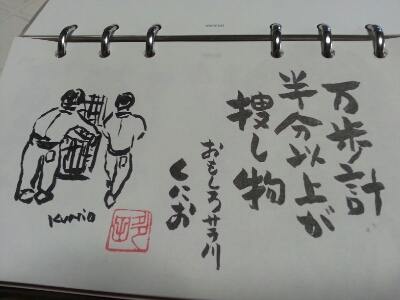 万歩計
半分以上が
捜し物
おもしろサラ川
くにお
KUNiO